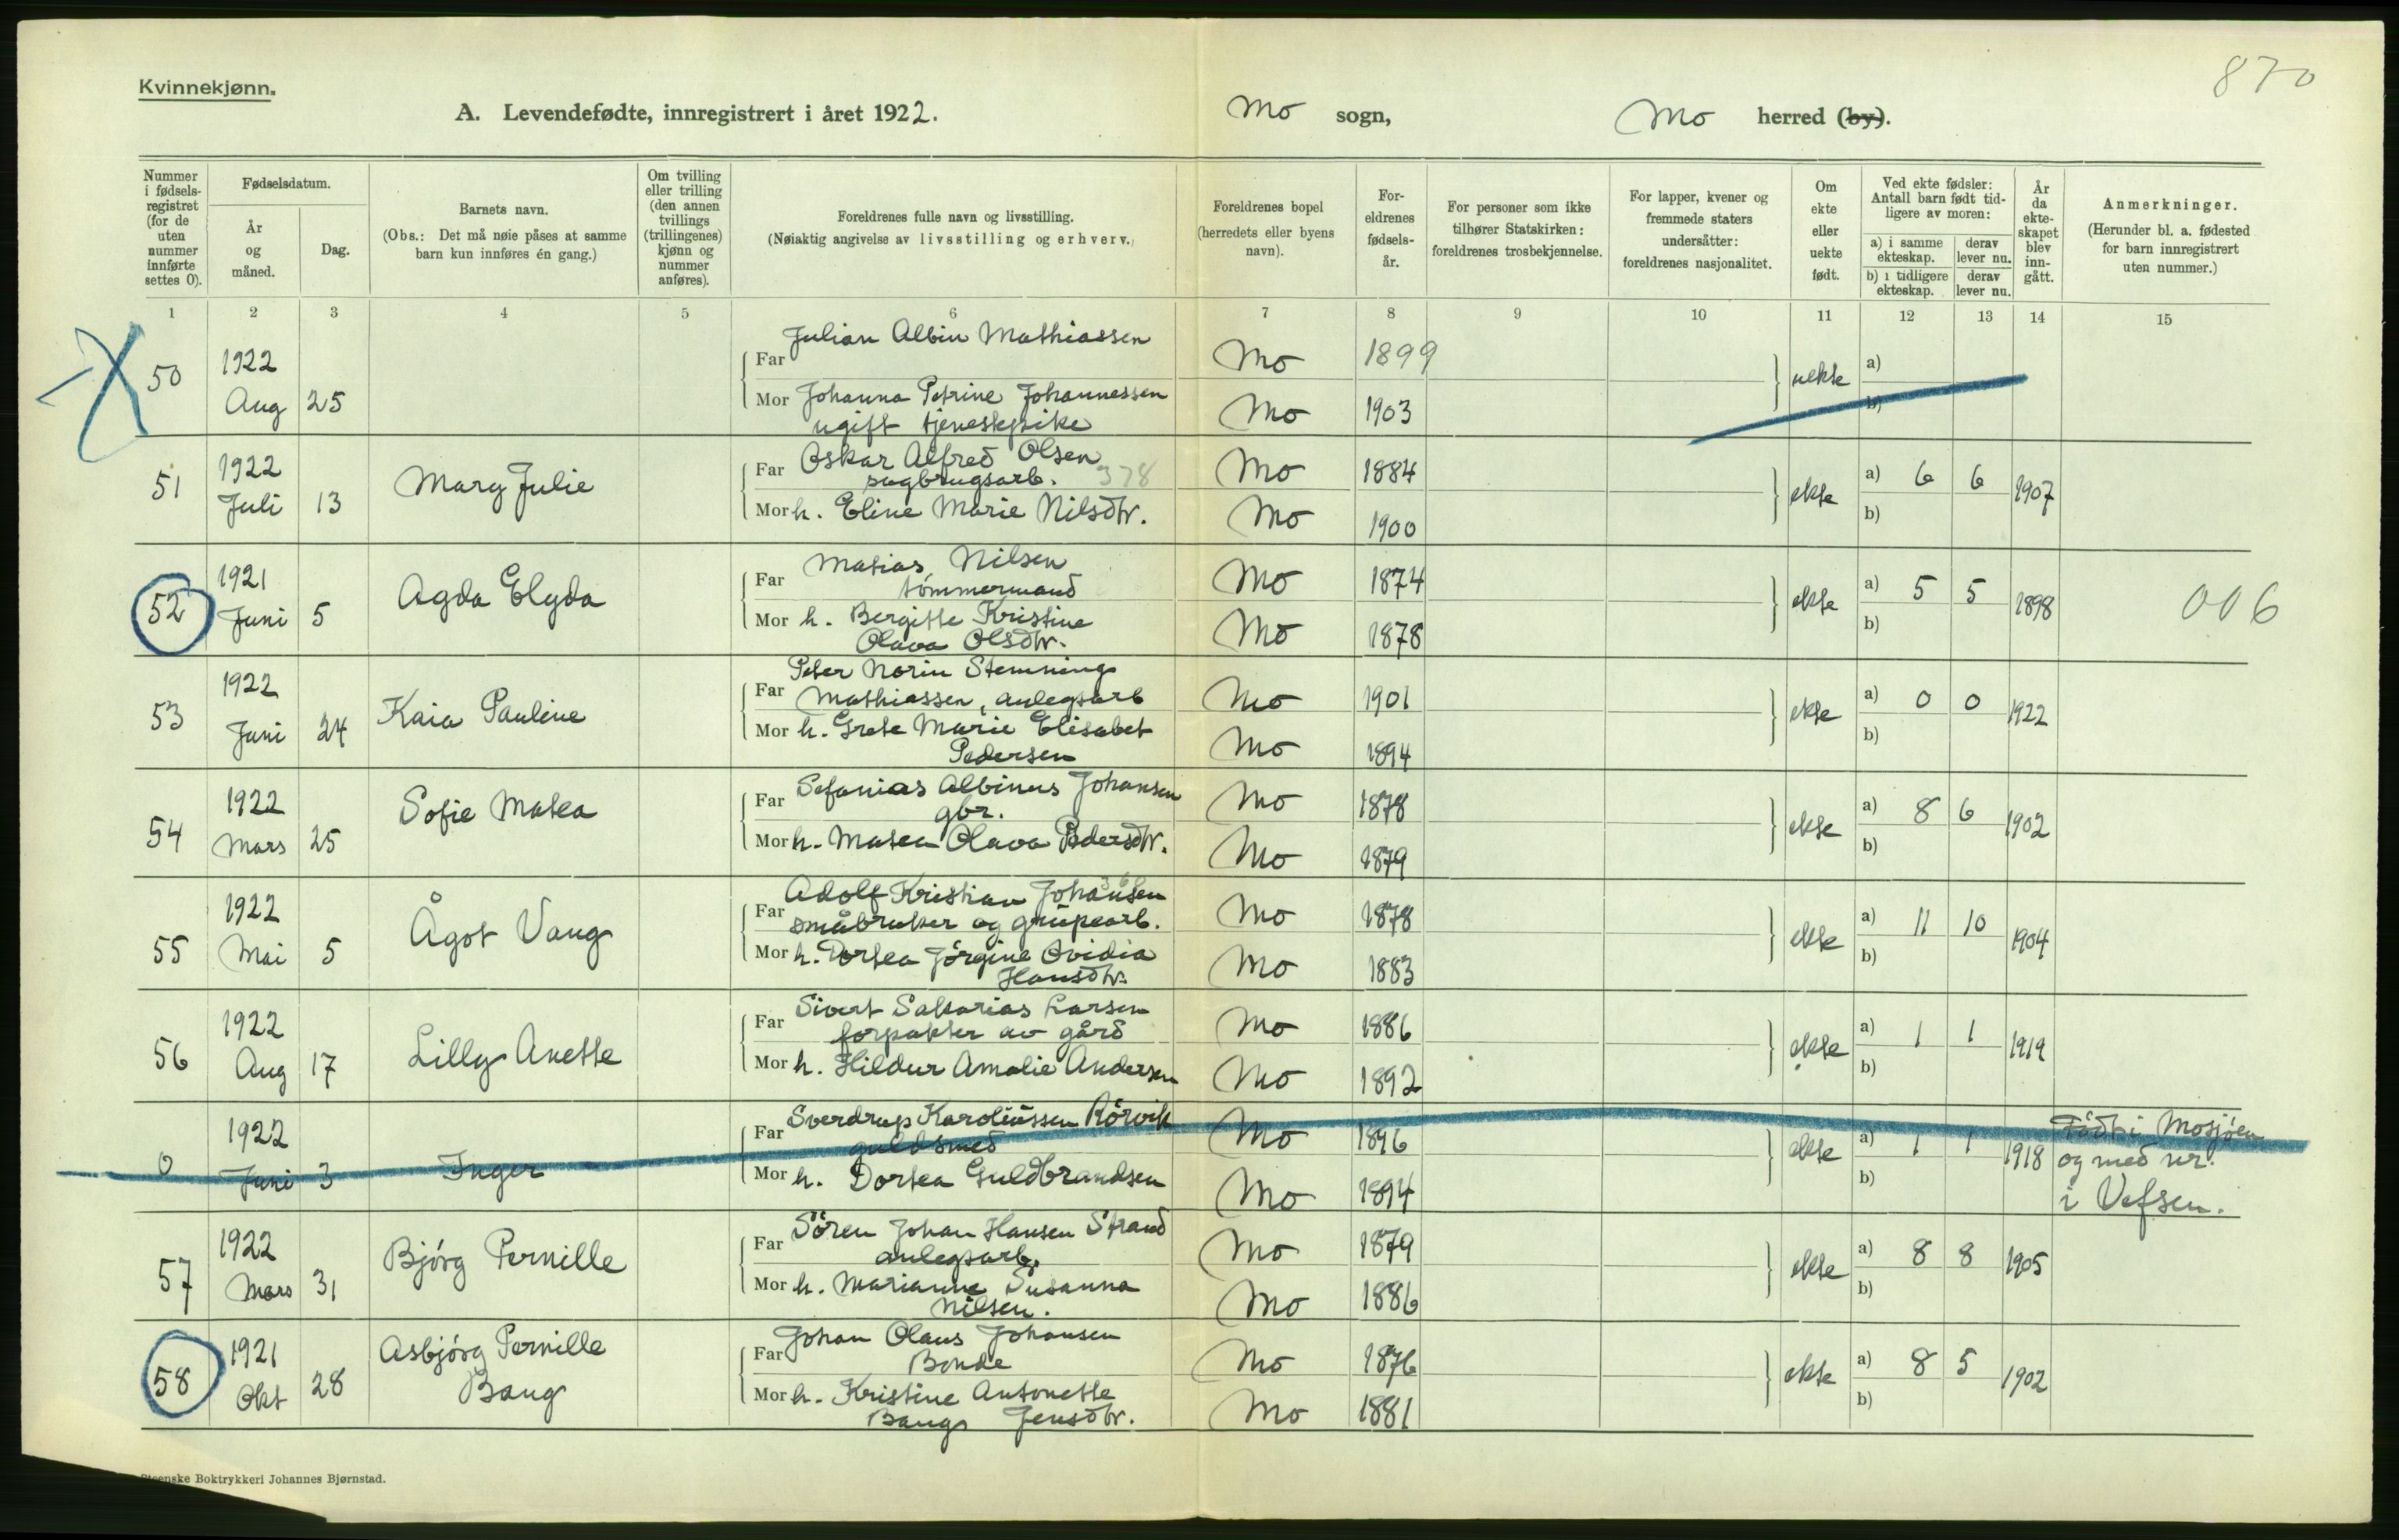 870
Kvinnekjønn.
A. Levendefødte, innregistrert i året 1922. Mo sogn, Mo herred (by).
Nummer i fødsels-registret (for de uten nummer innførte settes 0).
Fødselsdatum.
År og måned.
Dag.
Barnets navn.
(Obs.: Det må nøie påses at samme barn kun innføres én gang.)
Om tvilling eller trilling (den annen tvillings (trillingenes) kjønn og nummer anføres).
Foreldrenes fulle navn og livsstilling.
(Nøiaktig angivelse av livsstilling og erhverv.)
Foreldrenes bopel (herredets eller byens navn).
For-eldrenes fødsels-år.
For personer som ikke tilhører Statskirken: foreldrenes trosbekjennelse.
For lapper, kvener og fremmede staters undersåtter: foreldrenes nasjonalitet.
Om ekte eller uekte født.
Ved ekte fødsler: Antall barn født tid-ligere av moren:
a) i samme ekteskap. derav lever nu.
b) i tidligere ekteskap. derav lever nu.
År da ekte-skapet blev inn-gått.
Anmerkninger.
(Herunder bl. a. fødested for barn innregistrert uten nummer.)
1 2 3 4 5 6 7 8 9 10 11 12 13 14 15
Julian Albin Mathiassen
50 1922 Far Mo 1899 uekte a)
Aug 25 Mor Johanna Petrine Johannessen Mo 1903 b)
ugift tjenestepike
51 1922 Mary Julie Far Oskar Alfred Olsen Mo 1884 ekte a) 6 6 1907
sagbrugsarb. 378
Juli 13 Mor h. Eline Marie Nilsdtr. Mo 1900 b)
52 1921 Agda Elyda Far Matias Nilsen Mo 1874 ekte a) 5 5 1898 006
tømmermand
Juni 5 Mor h. Bergitte Kristine Mo 1878 b)
Olava Olsdtr.
Peter Norin Stemning
53 1922 Kaia Pauline Far Mathiassen, anlegsarb Mo 1901 ekte a) 0 0 1922
Juni 24 Mor h. Grete Marie Elisabet Mo 1894 b)
Pedersen
54 1922 Sofie Matea Far Sefanias Albinus Johansen Mo 1878 ekte a) 8 6 1902
gbr.
Mars 25 Mor h. Matea Olava Pedersdtr. Mo 1879 b)
Adolf Kristian Johansen
55 1922 Ågot Vang Far småbruker og grubearb. Mo 1878 ekte a) 11 10 1904
Mai 5 Mor h. Dortea Jørgine Ovidia Mo 1883 b)
Hansdtr.
Sivert Sakarias Larsen
56 1922 Lilly Anette Far forpakter av gård Mo 1886 ekte a) 1 1 1919
Aug 17 Mor h. Hildur Amalie Andersen Mo 1892 b)
Sverdrup Karoliussen Rörvik
0 1922 Inger Far guldsmed Mo 1896 ekte a) 1 1 1918 Født i Mosjöen
og med nr.
Juni 3 Mor h. Dortea Guldbrandsen Mo 1894 b) i Vefsen.
Sören Johan Hansen Strand
57 1922 Bjórg Pernille Far anlegsarb. Mo 1879 ekte a) 8 8 1905
Mars 31 Mor h. Marianne Susanna Mo 1886 b)
Nilsen.
Johan Olaus Johansen
58 1921 Asbjórg Pernille Far Bonde Mo 1876 ekte a) 8 5 1902
Okt 28 Bang Mor h. Kristine Antonette Mo 1881 b)
Bangs Jensdtr.
Steenske Boktrykkeri Johannes Bjørnstad.